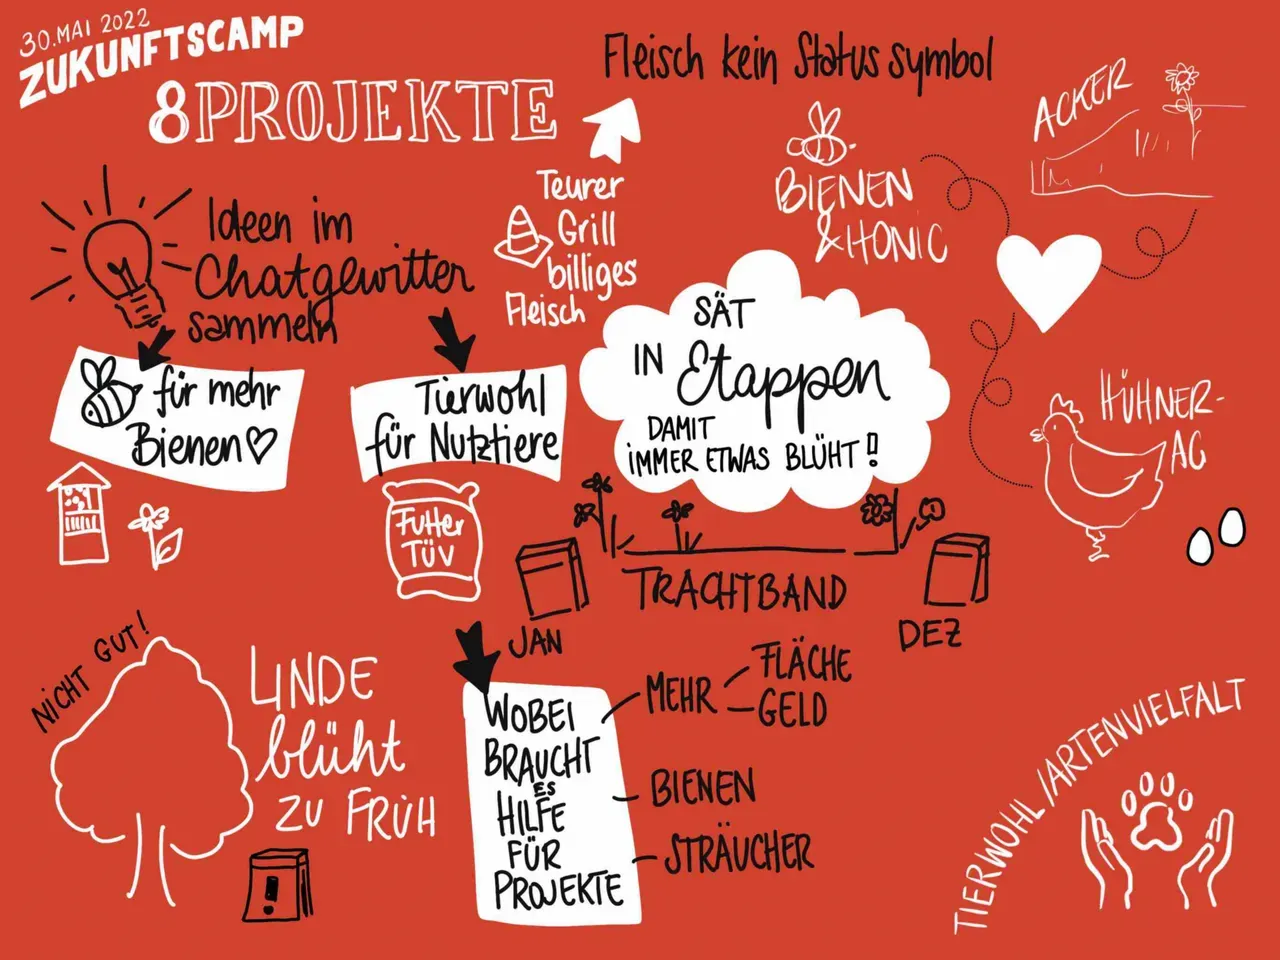 30.MAI 2022
ZUKUNFTSCAMP
8 PROJEKTE
Fleisch kein Statussymbol
Teurer
Grill
billiges
Fleisch
BIENEN
& HONIG
ACKER
Ideen im
Chatgewitter
sammeln
für mehr
Bienen
Tierwohl
für Nutztiere
Futter
TÜV
SÄT
IN Etappen
DAMIT
IMMER ETWAS BLÜHT!
TRACHTBAND
JAN
DEZ
HÜHNER-
AG
NICHT GUT!
LINDE
blüht
ZU FRÜH
!
WOBEI
BRAUCHT
ES
HILFE
FÜR
PROJEKTE
MEHR
FLÄCHE
GELD
BIENEN
STRÄUCHER
TIERWOHL/ARTENVIELFALT